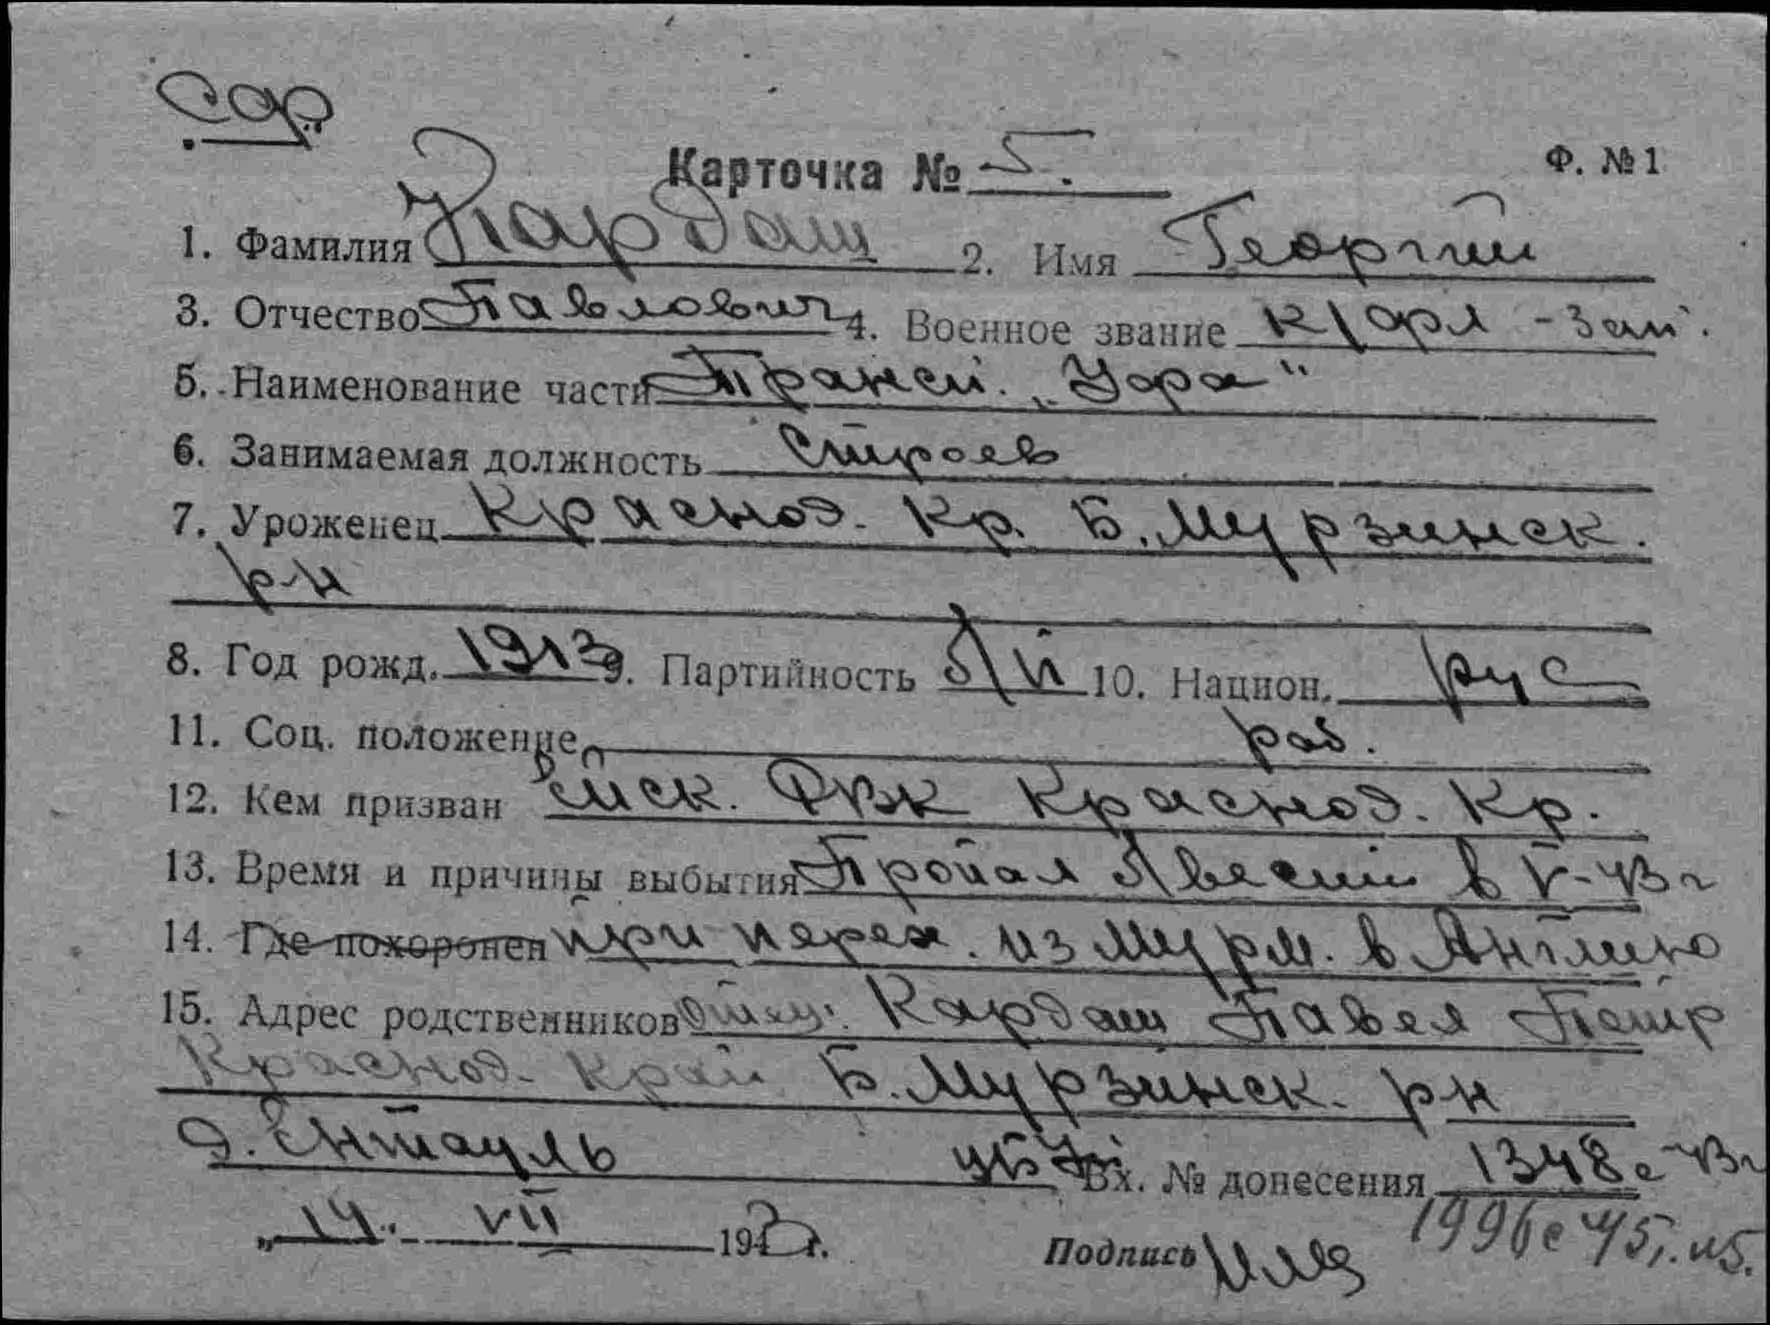 Сар
Карточка № 5. Ф. №1
1. Фамилия Кардаш 2. Имя Георгий
3. Отчество Павлович 4. Военное звание к/арм - зап.
5. Наименование части Трансп. „Уора"
6. Занимаемая должность Строев
7. Уроженец Краснод. Кр. Б. Мурзинск.
р-н
8. Год рожд. 1913 9. Партийность б/п 10. Национ. рус
11. Соц. положение раб.
12. Кем призван Ейск. РВК Краснод. Кр.
13. Время и причины выбытия Пропал без вести в V-43 г
14. Где похоронен при перех. из Мурм. в Англию
15. Адрес родственников отец: Кардаш Павел Петр
Краснод. Край Б. Мурзинск. р-н
д. Ентауль Вх. № донесения 1348 с 43 г
„14" VII 1943 г.
Подпись 1996 с 45 г.